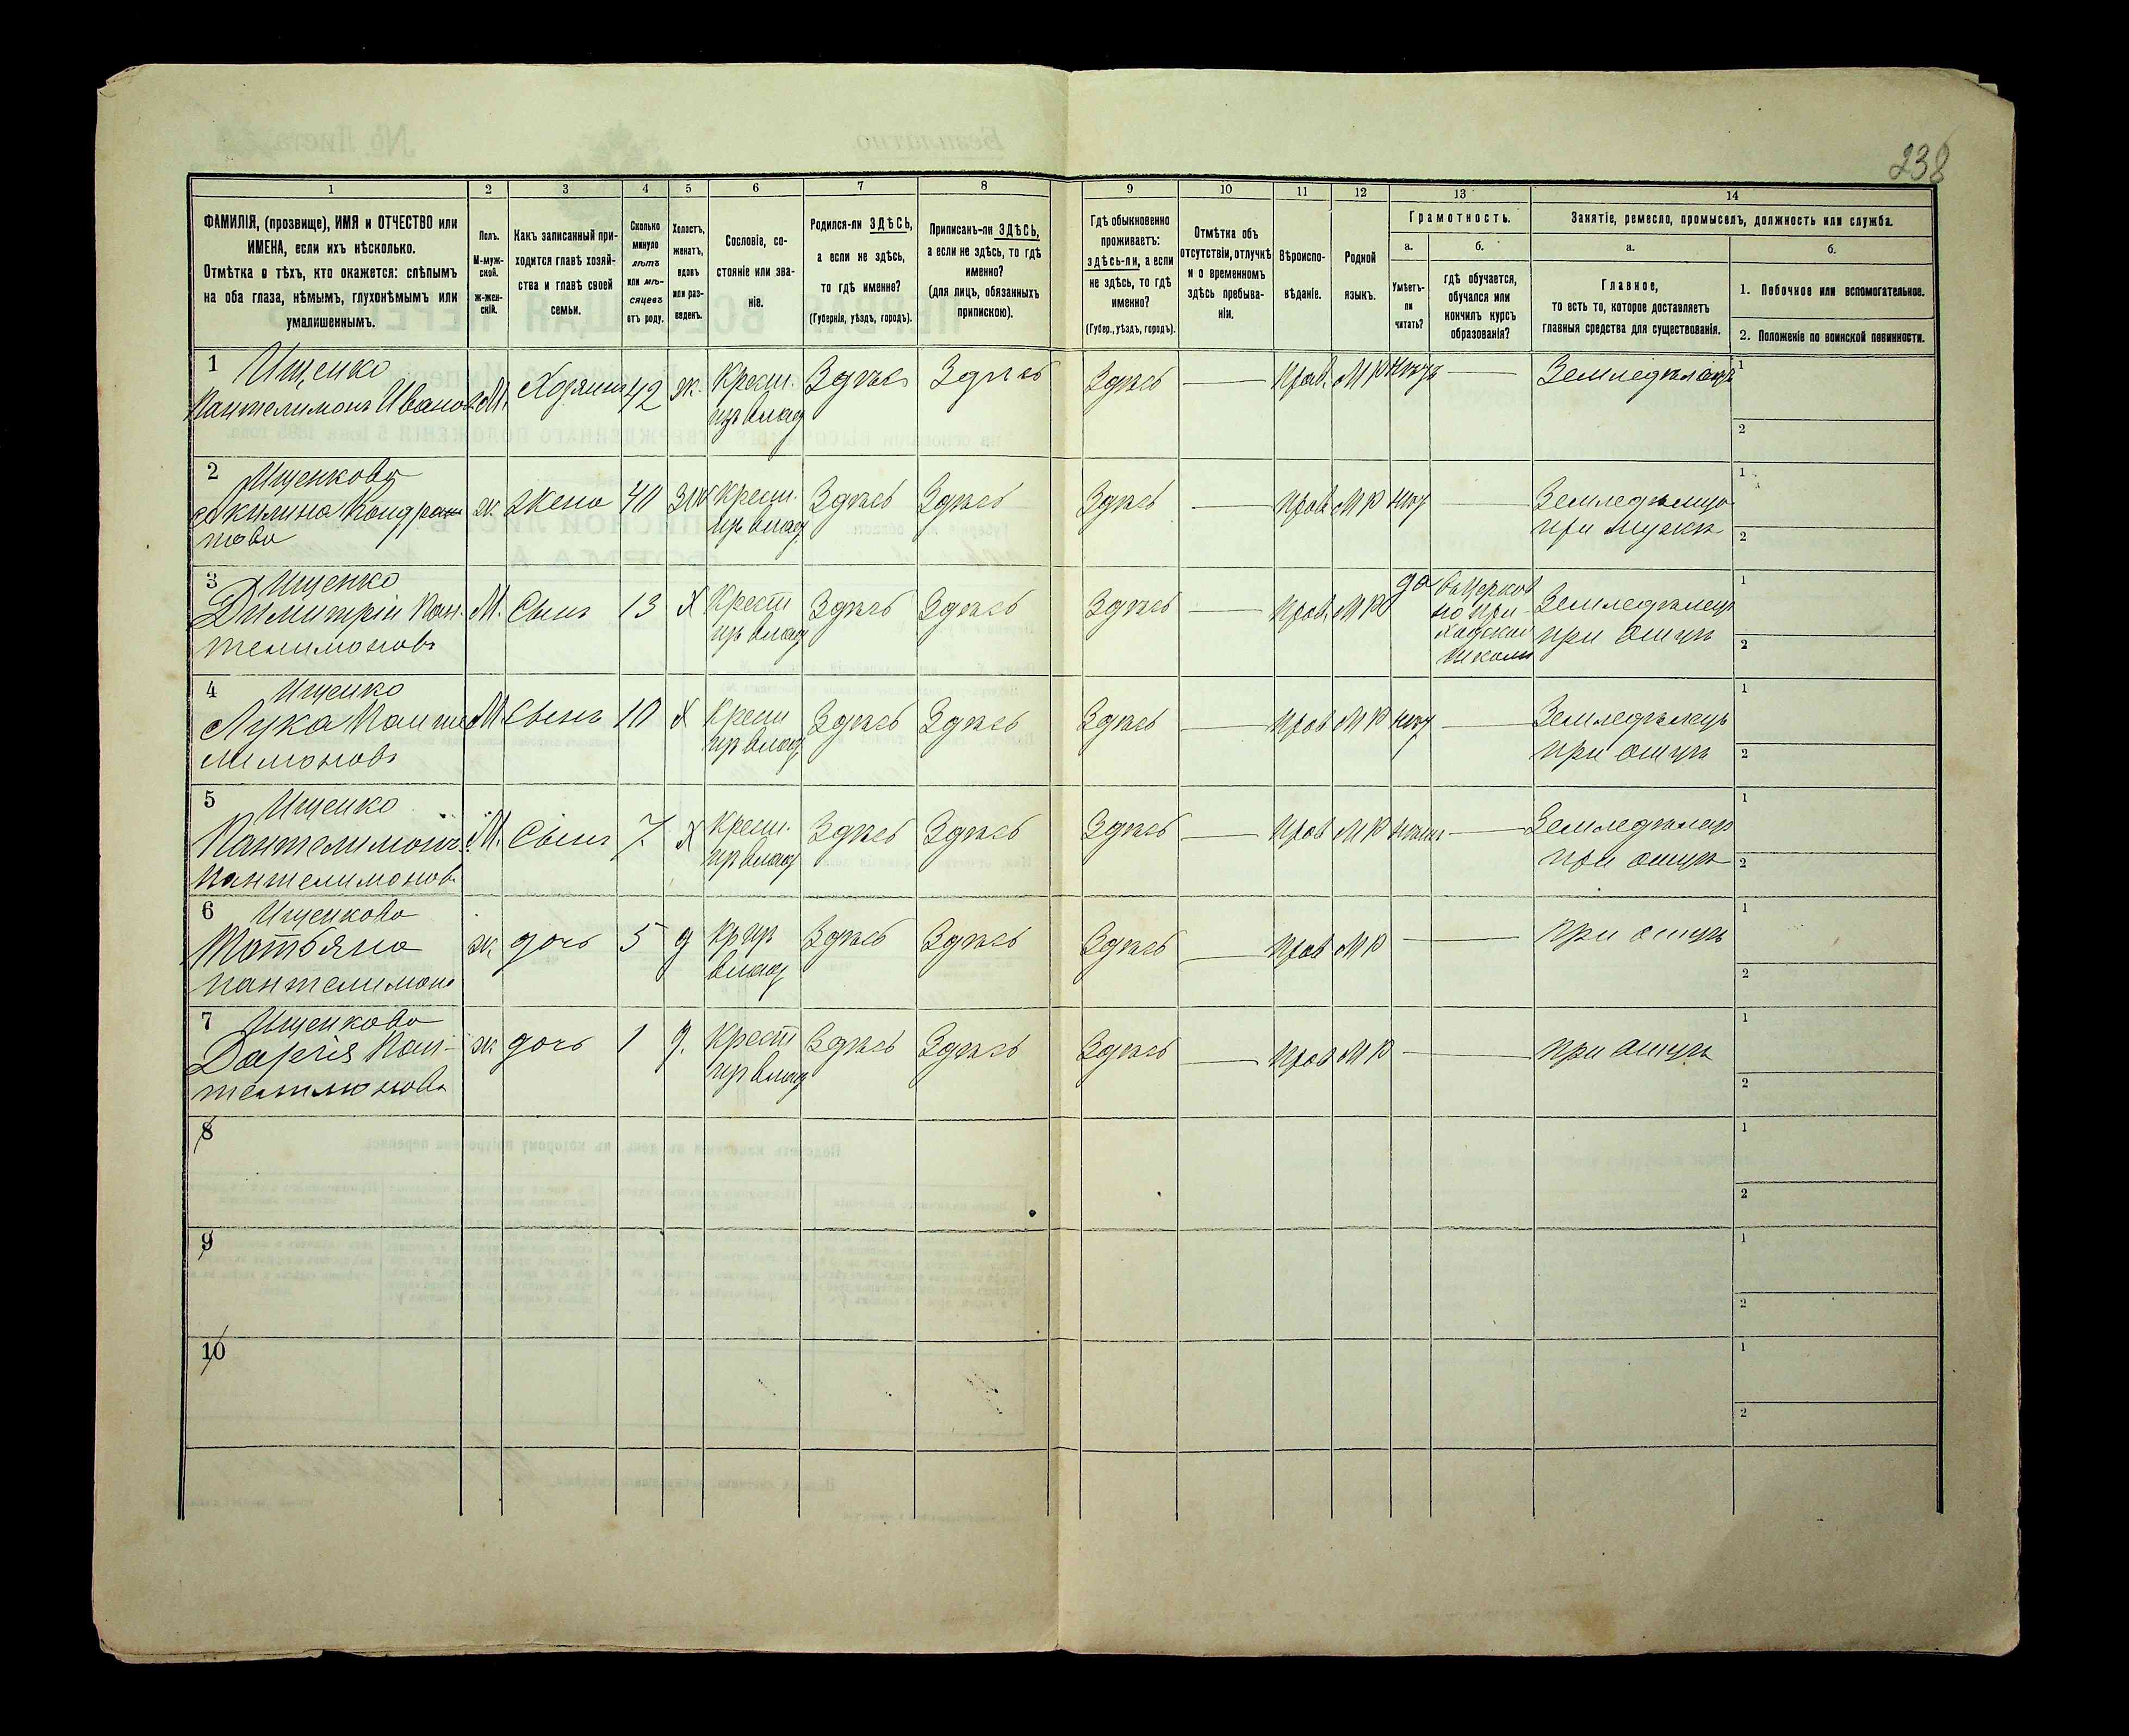 238
1 2 3 4 5 6 7 8 9 10 11 12 13 14
ФАМИЛІЯ, (прозвище), ИМЯ и ОТЧЕСТВО или
ИМЕНА, если ихъ нѣсколько.
Отмѣтка о тѣхъ, кто окажется: слѣпымъ
на оба глаза, нѣмымъ, глухонѣмымъ или
умалишеннымъ.
Полъ.
М-муж-
ской.
ж-жен-
скій.
Какъ записанный при-
ходится главѣ хозяй-
ства и главѣ своей
семьи.
Сколько
минуло
лѣтъ
или мѣ-
сяцевъ
отъ роду.
Холостъ,
женатъ,
вдовъ
или раз-
веденъ.
Сословіе, со-
стояніе или зва-
ніе.
Родился-ли ЗДѢСЬ,
а если не здѣсь,
то гдѣ именно?
(Губернія, уѣздъ, городъ).
Приписанъ-ли ЗДѢСЬ,
а если не здѣсь, то гдѣ
именно?
(для лицъ, обязанныхъ
припискою).
Гдѣ обыкновенно
проживаетъ:
здѣсь-ли, а если
не здѣсь, то гдѣ
именно?
(Губер., уѣздъ, городъ).
Отмѣтка объ
отсутствіи, отлучкѣ
и о временномъ
здѣсь пребыва-
ніи.
Вѣроиспо-
вѣданіе.
Родной
языкъ.
Грамотность.
а.
Умѣетъ-
ли
читать?
б.
гдѣ обучается,
обучался или
кончилъ курсъ
образованія?
Занятіе, ремесло, промыселъ, должность или служба.
а.
Главное,
то есть то, которое доставляетъ
главныя средства для существованія.
б.
1. Побочное или вспомогательное.
2. Положеніе по воинской повинности.
1 Ищенко
Пантелимонъ Иванов М. Хозяинъ 42 ж. Крест. Здѣсь Здѣсь Здѣсь — Прав. МР нѣтъ — Земледѣлецъ 1
изъ влад
2
2 Ищенкова
Акилина Кондра ж. Жена 40 зм Крест. Здѣсь Здѣсь Здѣсь — Прав МР нѣт — Земледѣлица 1
това изъ влад при мужѣ 2
3 Ищенко
Димитрій Пан. М. Сынъ 13 Х Крест Здѣсь Здѣсь Здѣсь — Прав. МР да въ церков Земледѣлецъ 1
телимоновъ изъ влад но при- при отцѣ 2
ходской
школѣ
4 Ищенко
Лука Панте М Сынъ 10 Х Крест Здѣсь Здѣсь Здѣсь — Прав МР нѣт — Земледѣлецъ 1
лимоновъ изъ влад при отцѣ 2
5 Ищенко
Пантелимонъ М. Сынъ 7. Х Крест. Здѣсь Здѣсь Здѣсь — Прав МР нѣтъ — Земледѣлецъ 1
Пантелимонов. изъ влад при отцѣ 2
6 Ищенкова
Татьяна ж. дочь 5 д Кр изъ Здѣсь Здѣсь Здѣсь — Прав МР — при отцѣ 1
Пантелимоно влад 2
7 Ищенкова
Дарія Пан- ж дочь 1 д. Крест Здѣсь Здѣсь Здѣсь — Прав МР — при отцѣ 1
телимонова изъ влад 2
8 1
2
9 1
2
10 1
2